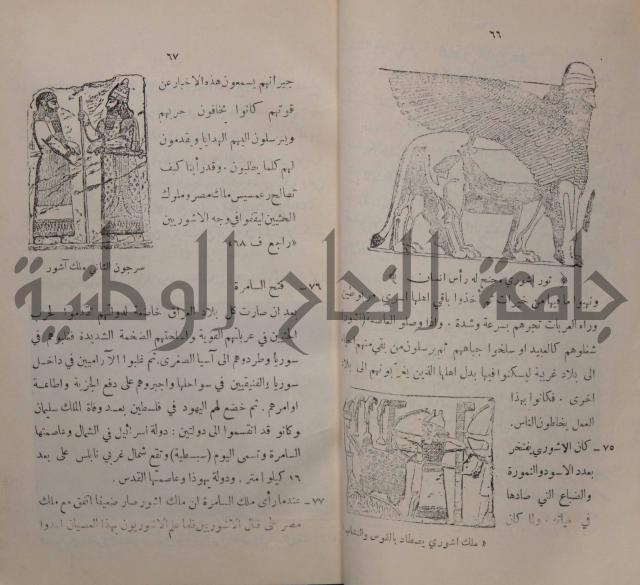 ٦٦
« ثور اشوري مجنح له رأس انسان »
ونهبوا ما فيها من خيرات
وراء العربات تجرهم بسرعة وشدة .
شغلوهم كالعبيد او سلخوا جباههم ثم يرسلون من بقي منهم
الى بلاد غريبة ليسكنوا فيها بدل اهلها الذين الى بلاد
اخرى . فكانوا بهذا
العمل يخاطون الناس.
٧٥ - كان الاشوري يفتخر
بعدد الاسود والنمورة
والضباع التي صادها
في حياته . ولما كان
« ملك اشوري يصطاد بالقوس والنشاب
٦٧
جيرانهم يسمعون هذه الاخبار عن
قوتهم كانوا يخافون حربهم
ويرسلون اليهم الهدايا ويقدمون
لهم كلما يطلبون . وقد رأينا كيف
تصالح رعمسيس ملك مصر وملوك
الحثيين ليقفوا في وجه الاشوريين
« راجع ف ٦٨ »
سرجون الثاني ملك آشور
٧٦ - فتح السامرة
بعد ان صارت كل بلاد العراق خاضعة لدولتهم تقدموا لحرب
الحثيين في عرباتهم القوية واسلحتهم الضخمة الشديدة فغلبوهم في
سوريا وطردوهم الى آسيا الصغرى. ثم غلبوا الآراميين في داخل
سوريا والفنيقيين في سواحلها واجبروهم على دفع الجزية واطاعة
اوامرهم . ثم خضع لهم اليهود في فلسطين بعد وفاة الملك سليمان
وكانو قد انقسموا الى دولتين : دولة اسرائيل في الشمال وعاصمتها
السامرة وتسمى اليوم (سبسطية) وتقع شمال غربي نابلس على بعد
١٦ كيلو امتر . ودولة يهوذا وعاصمتها القدس .
٧٧ - عندما رأى ملك السامرة ان ملك اشور صار ضعيفا اتفق مع ملك
مصر على قتال الاشوريين فلما علم الاشوريون بهذا العصيان
جامعة النجاح الوطنية